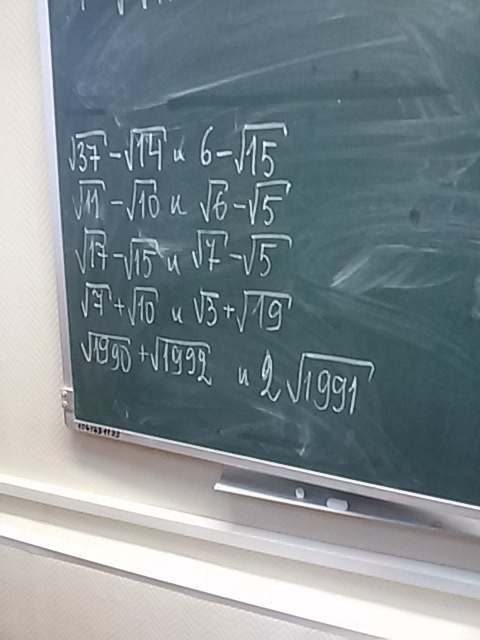 √37 - √14 и 6 - √15
√11 - √10 и √6 - √5
√17 - √15 и √7 - √5
√7 + √10 и √3 + √19
√1990 + √1992 и 2√1991